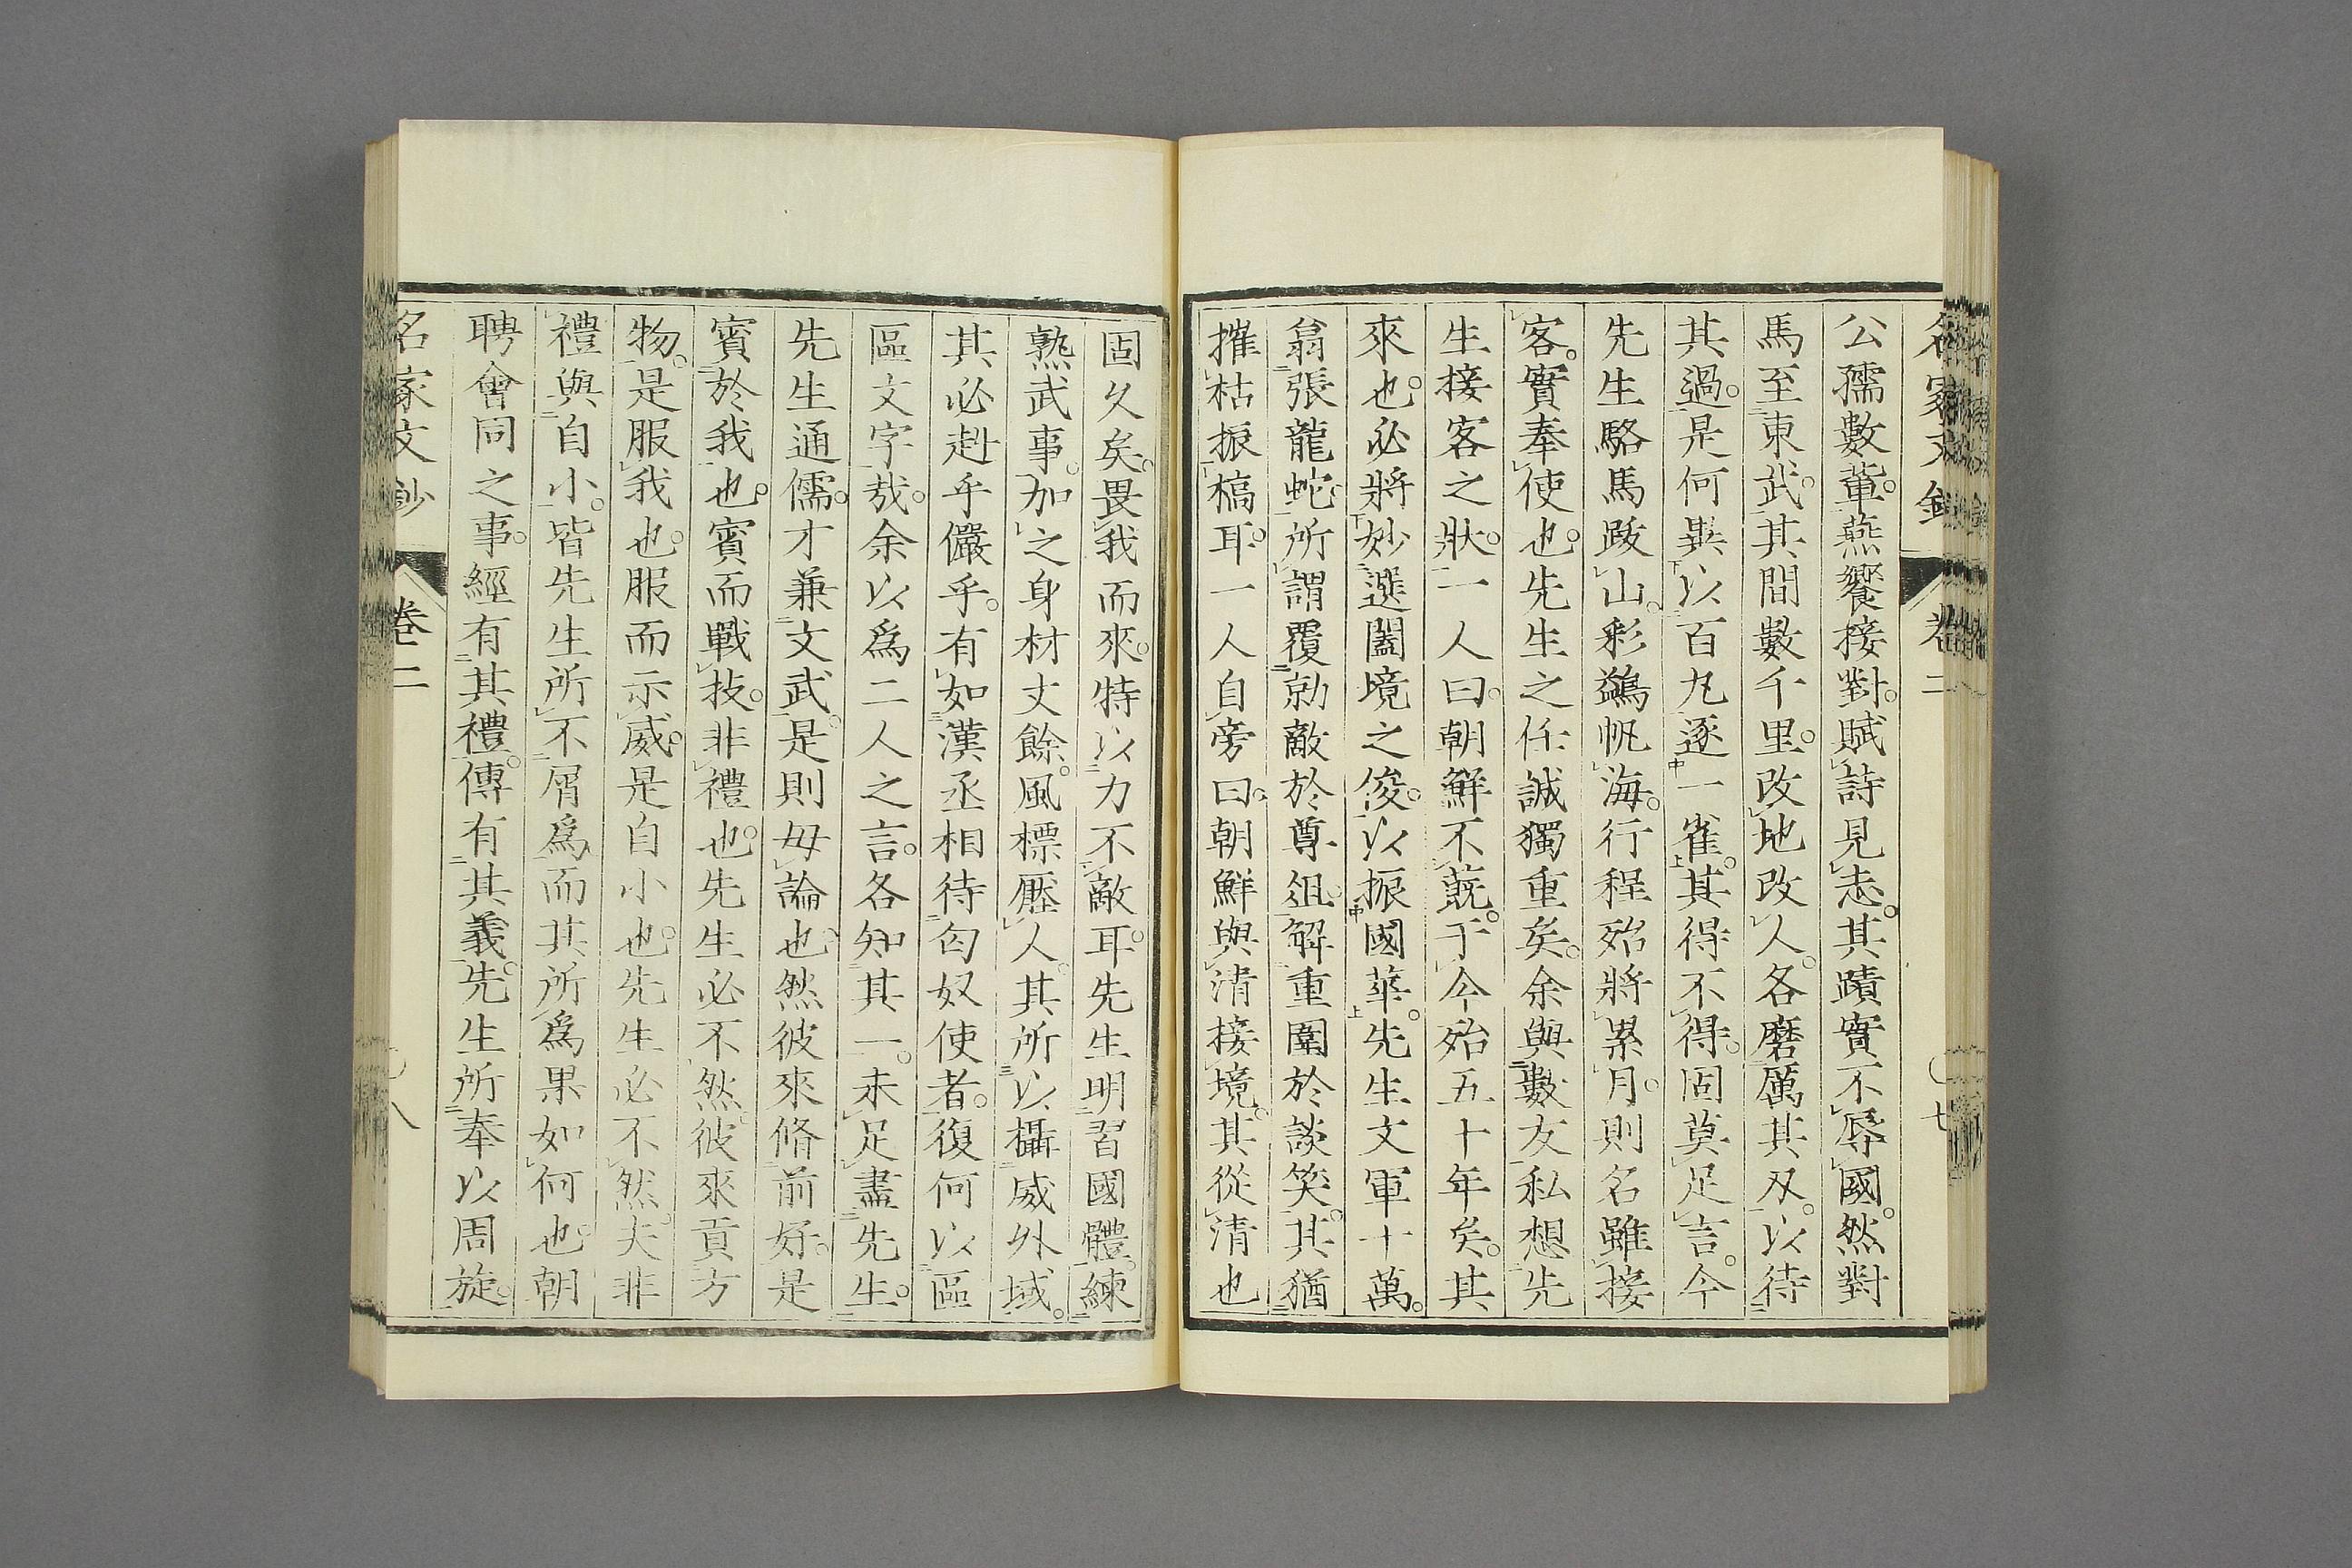 公孺數輩。燕饗接對。賦詩見志。其蹟實不辱國。然對
馬至東武。其間數千里。改地改人。各磨厲其刄。以待
其過。是何異以百九逐一雀。其得不得。固莫足言。今
先生駱馬跋山。彩鷁帆海。行程殆將累月。則名雖接
客。實奉使也。先生之任誠獨重矣。余與數友私想先
生接客之狀。一人曰。朝鮮不蔇。于今殆五十年矣。其
來也。必將妙選闔境之俊。以振國華。先生文軍十萬。
翁張龍蛇。所謂覆勍敵於尊俎。解重圍於談笑。其猶
摧枯振槁耳。一人自旁曰。朝鮮與清接境。其從清也
固久矣。畏我而來。特以力不敵耳。先生明習國體。練
熟武事。加之身材丈餘。風標壓人。其所以攝威外域。
其必赳乎儼乎。有如漢丞相待匈奴使者。復何以區
區文字哉。余以爲二人之言。各知其一。未足盡先生。
先生通儒。才兼文武。是則毋論也。然彼來脩前好。是
賓於我也。賓而戰技。非禮也。先生必不然。彼來貢方
物。是服我也。服而示威。是自小也。先生必不然。夫非
禮與自小。皆先生所不屑爲。而其所爲果如何也。朝
聘會同之事。經有其禮。傳有其義。先生所奉以周旋。
名家文鈔
卷二
八